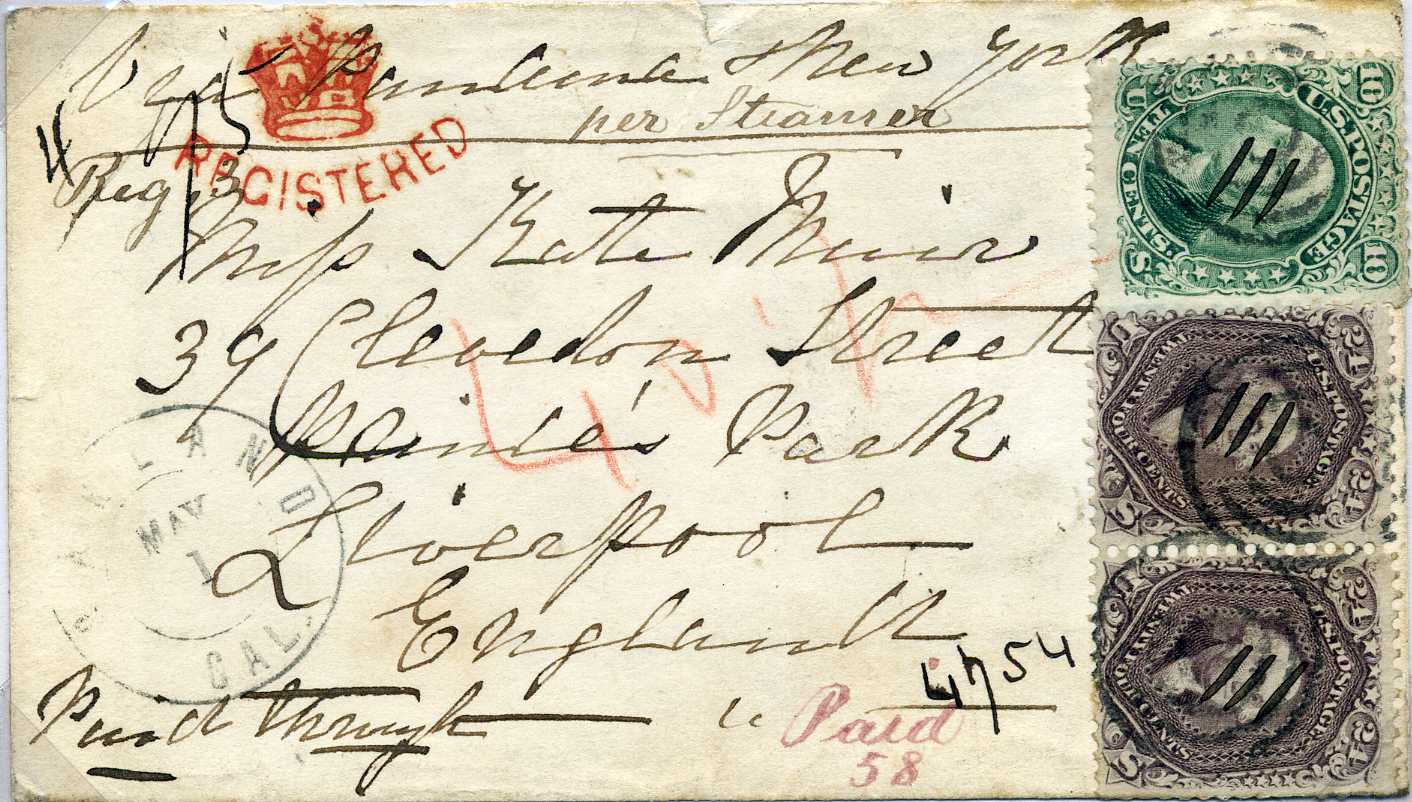 Via Panama & New York
per Steamer
REGISTERED
Reg
Miss Kate Muir
39 Clevedon Street
Princes Park
Liverpool
England
Paid through
Paid
58
4754
OAKLAND
MAY
1
CAL.
U.S. POSTAGE
10 10
TEN CENTS
U S
U.S. POSTAGE
24 24
TWENTY FOUR CENTS
U S
U.S. POSTAGE
24 24
TWENTY FOUR CENTS
U S